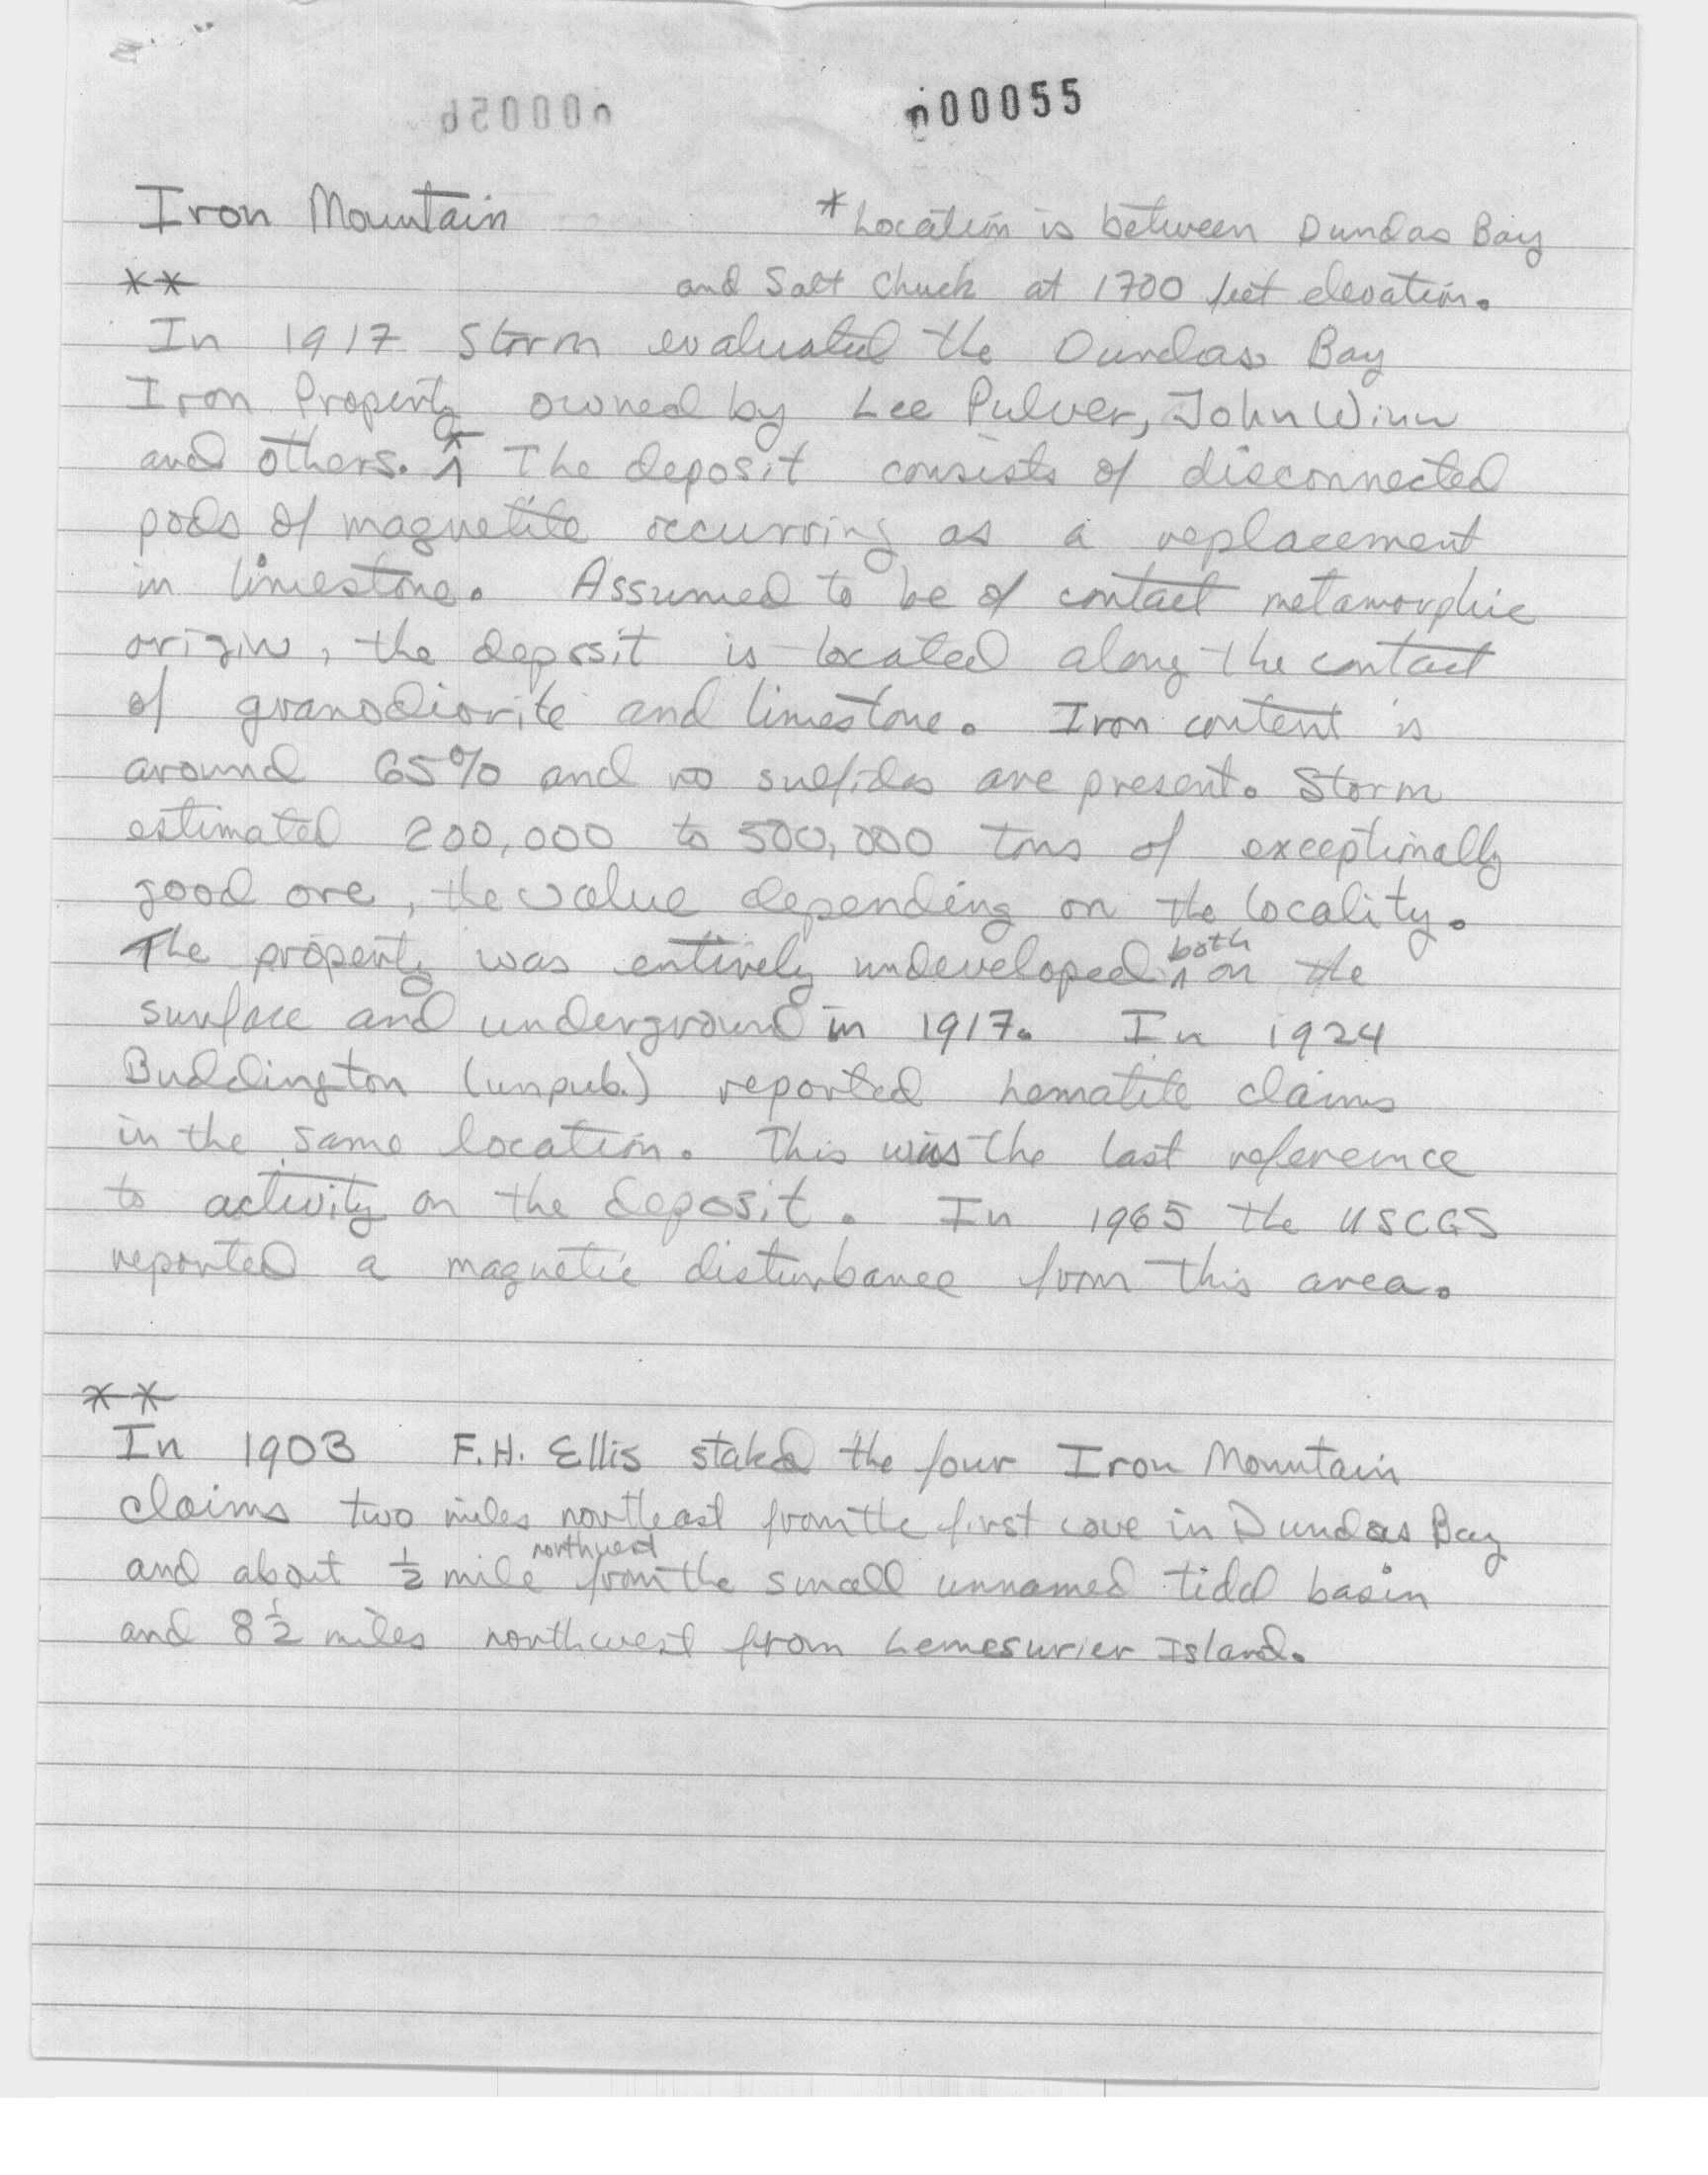 n00055
Iron Mountain
*Location is between Dundas Bay
and Salt Chuck at 1700 feet elevation.
**
In 1917 Storm evaluated the Dundas Bay
Iron Property owned by Lee Pulver, John Winn
and others. * ^ The deposit consists of disconnected
pods of magnetite occurring as a replacement
in limestone. Assumed to be of contact metamorphic
origin, the deposit is located along the contact
of granodiorite and limestone. Iron content is
around 65% and no sulfides are present. Storm
estimated 200,000 to 500,000 tons of exceptionally
good ore, the value depending on the locality.
The property was entirely undeveloped ^ both on the
surface and underground in 1917. In 1924
Buddington (unpub.) reported hematite claims
in the same location. This was the last reference
to activity on the deposit. In 1965 the USCGS
reported a magnetic disturbance from this area.
**
In 1903 F.H. Ellis staked the four Iron Mountain
claims two miles northeast from the first cove in Dundas Bay
and about ½ mile northwest from the small unnamed tidal basin
and 8½ miles northwest from Lemesurier Island.